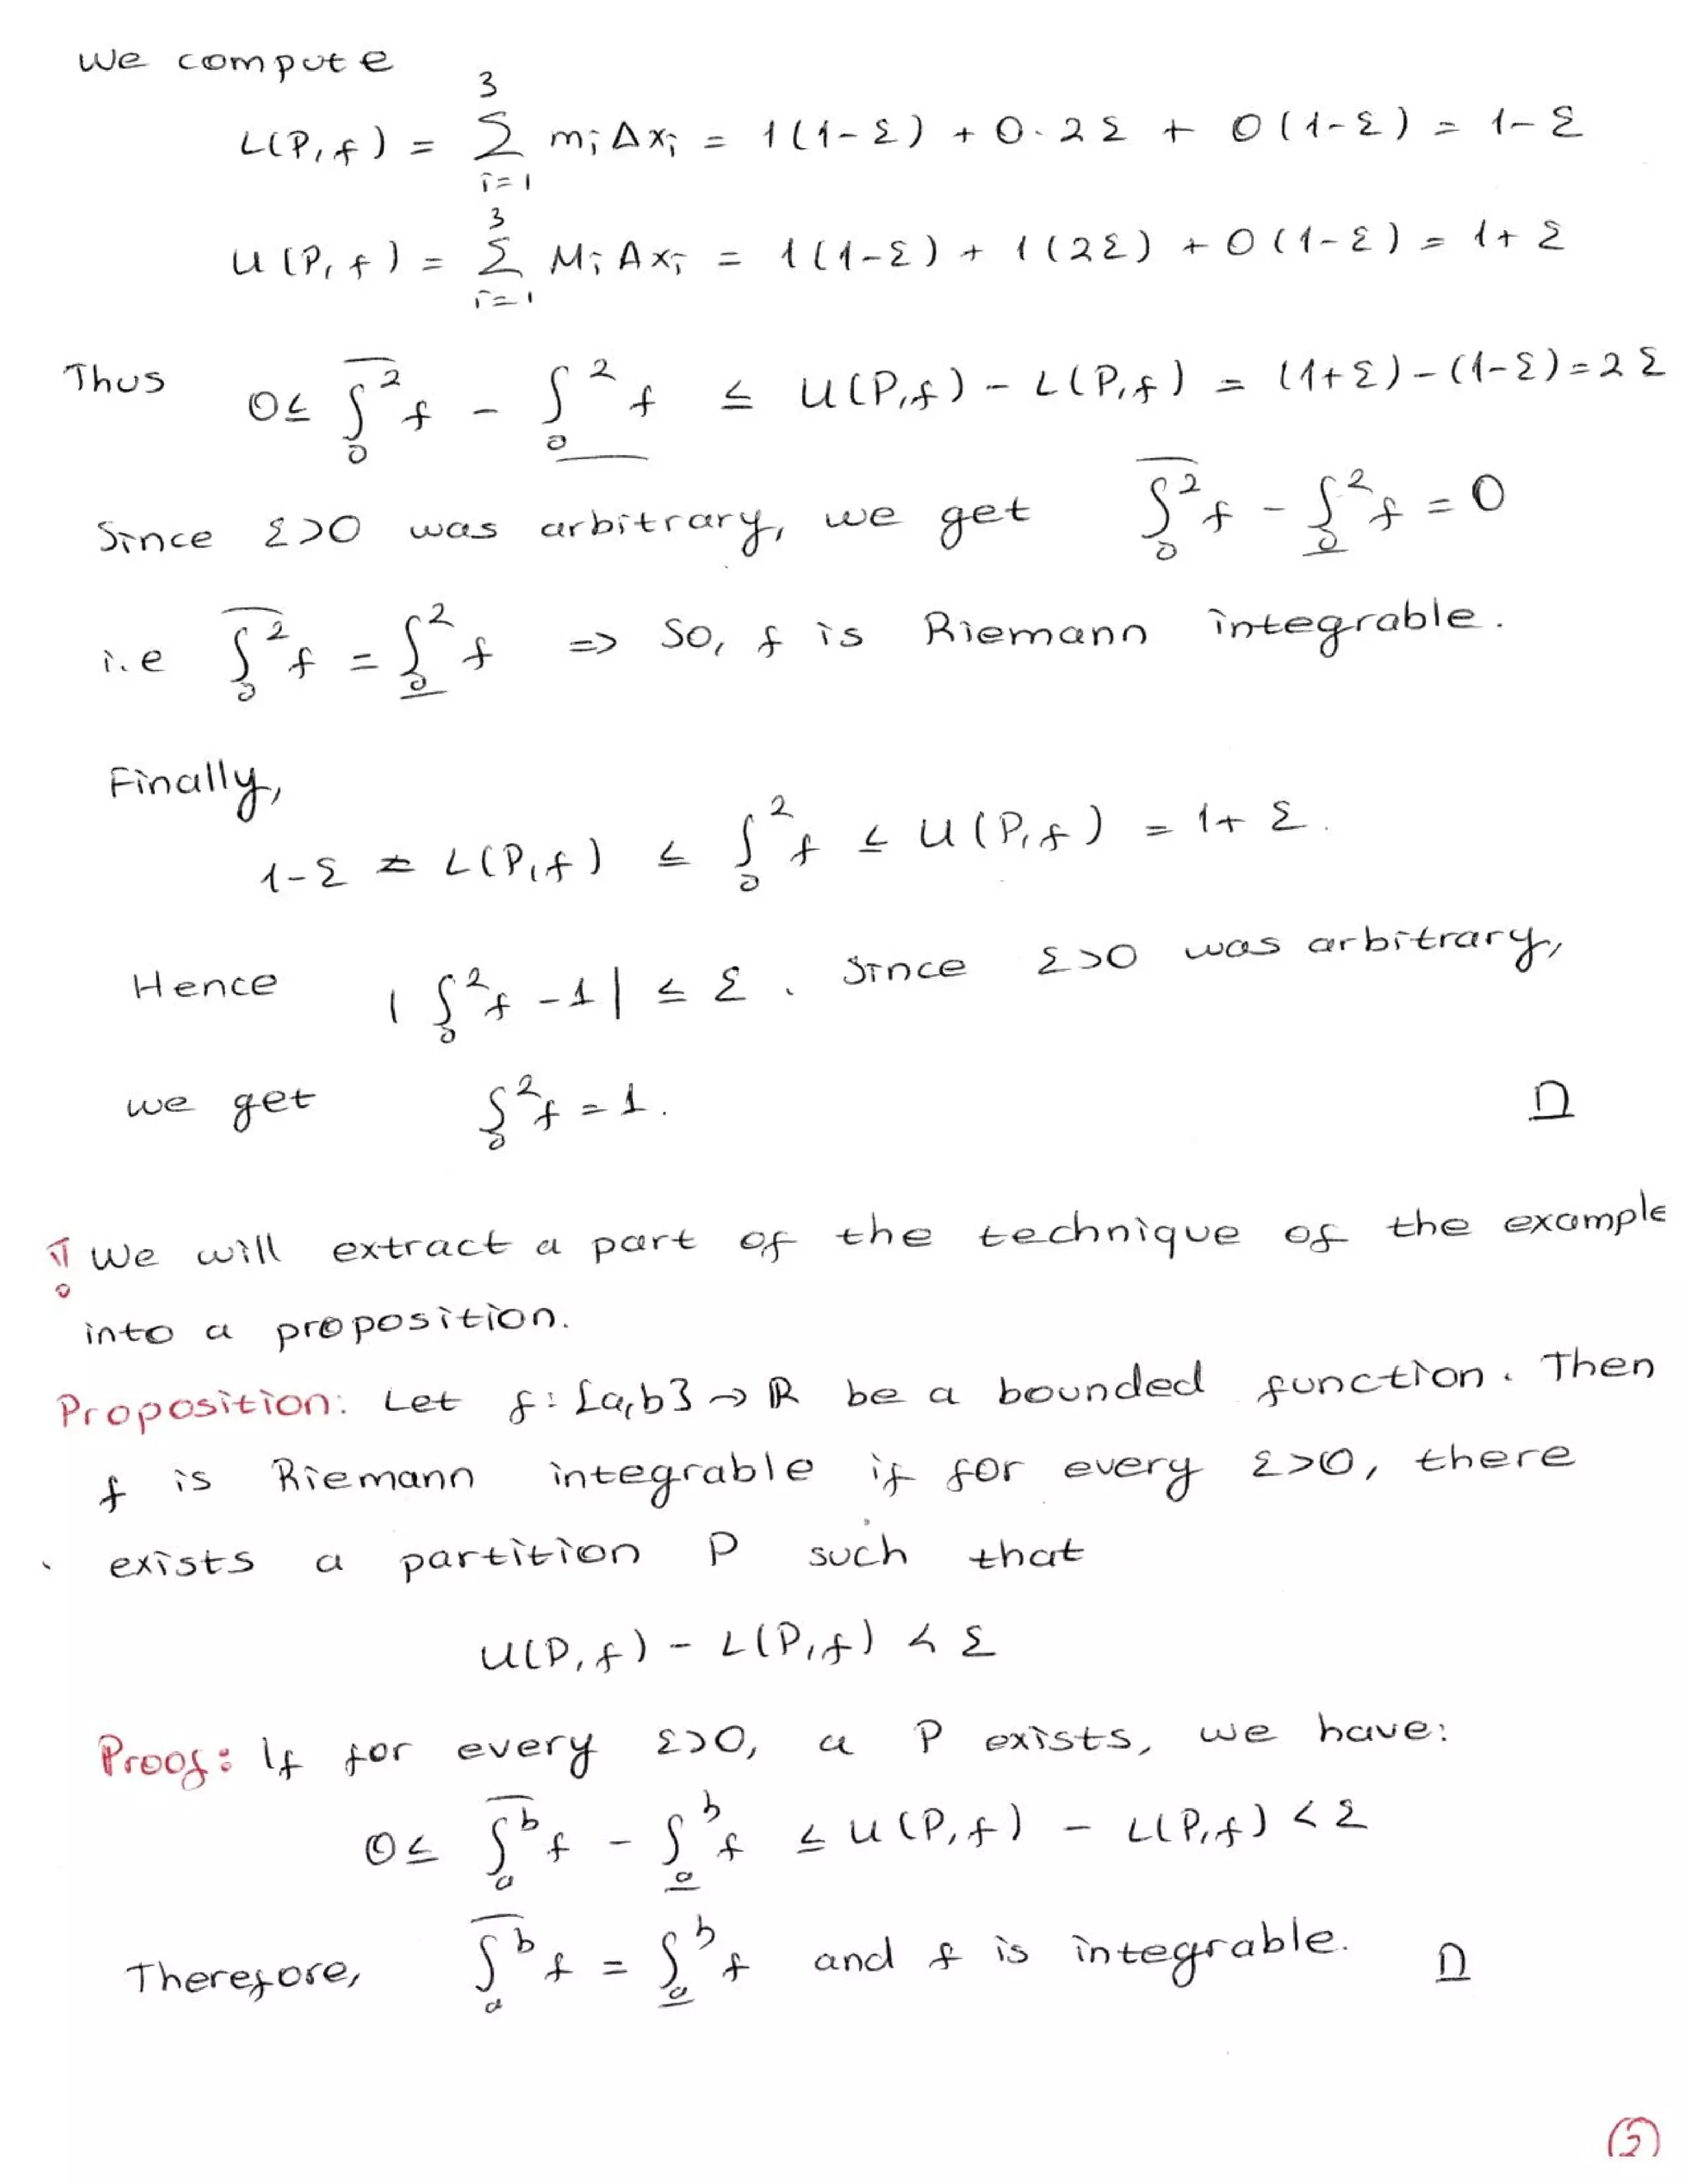 We compute
L(P,f) = 3∑i=1 mᵢΔxᵢ = 1(1-ε) + 0·2ε + 0(1-ε) = 1-ε
U(P,f) = 3∑i=1 MᵢΔxᵢ = 1(1-ε) + 1(2ε) + 0(1-ε) = 1+ε
Thus 0 ≤ ‾∫₀² f - ∫₀² f ≤ U(P,f) - L(P,f) = (1+ε)-(1-ε)=2ε
Since ε>0 was arbitrary, we get ‾∫₀² f - ∫₀² f = 0
i.e ‾∫₀² f = ∫₀² f => So, f is Riemann integrable.
Finally,
1-ε = L(P,f) ≤ ∫₀² f ≤ U(P,f) = 1+ε.
Hence |∫₀² f -1| ≤ ε. Since ε>0 was arbitrary,
we get ∫₀² f = 1. □
We will extract a part of the technique of the example
into a proposition.
Proposition: Let f: [a,b] → ℝ be a bounded function. Then
f is Riemann integrable if for every ε>0, there
exists a partition P such that
U(P,f) - L(P,f) < ε
Proof: If for every ε>0, a P exists, we have:
0 ≤ ‾∫ₐᵇ f - ∫ₐᵇ f ≤ U(P,f) - L(P,f) < ε
Therefore, ‾∫ₐᵇ f = ∫ₐᵇ f and f is integrable. □
(5)